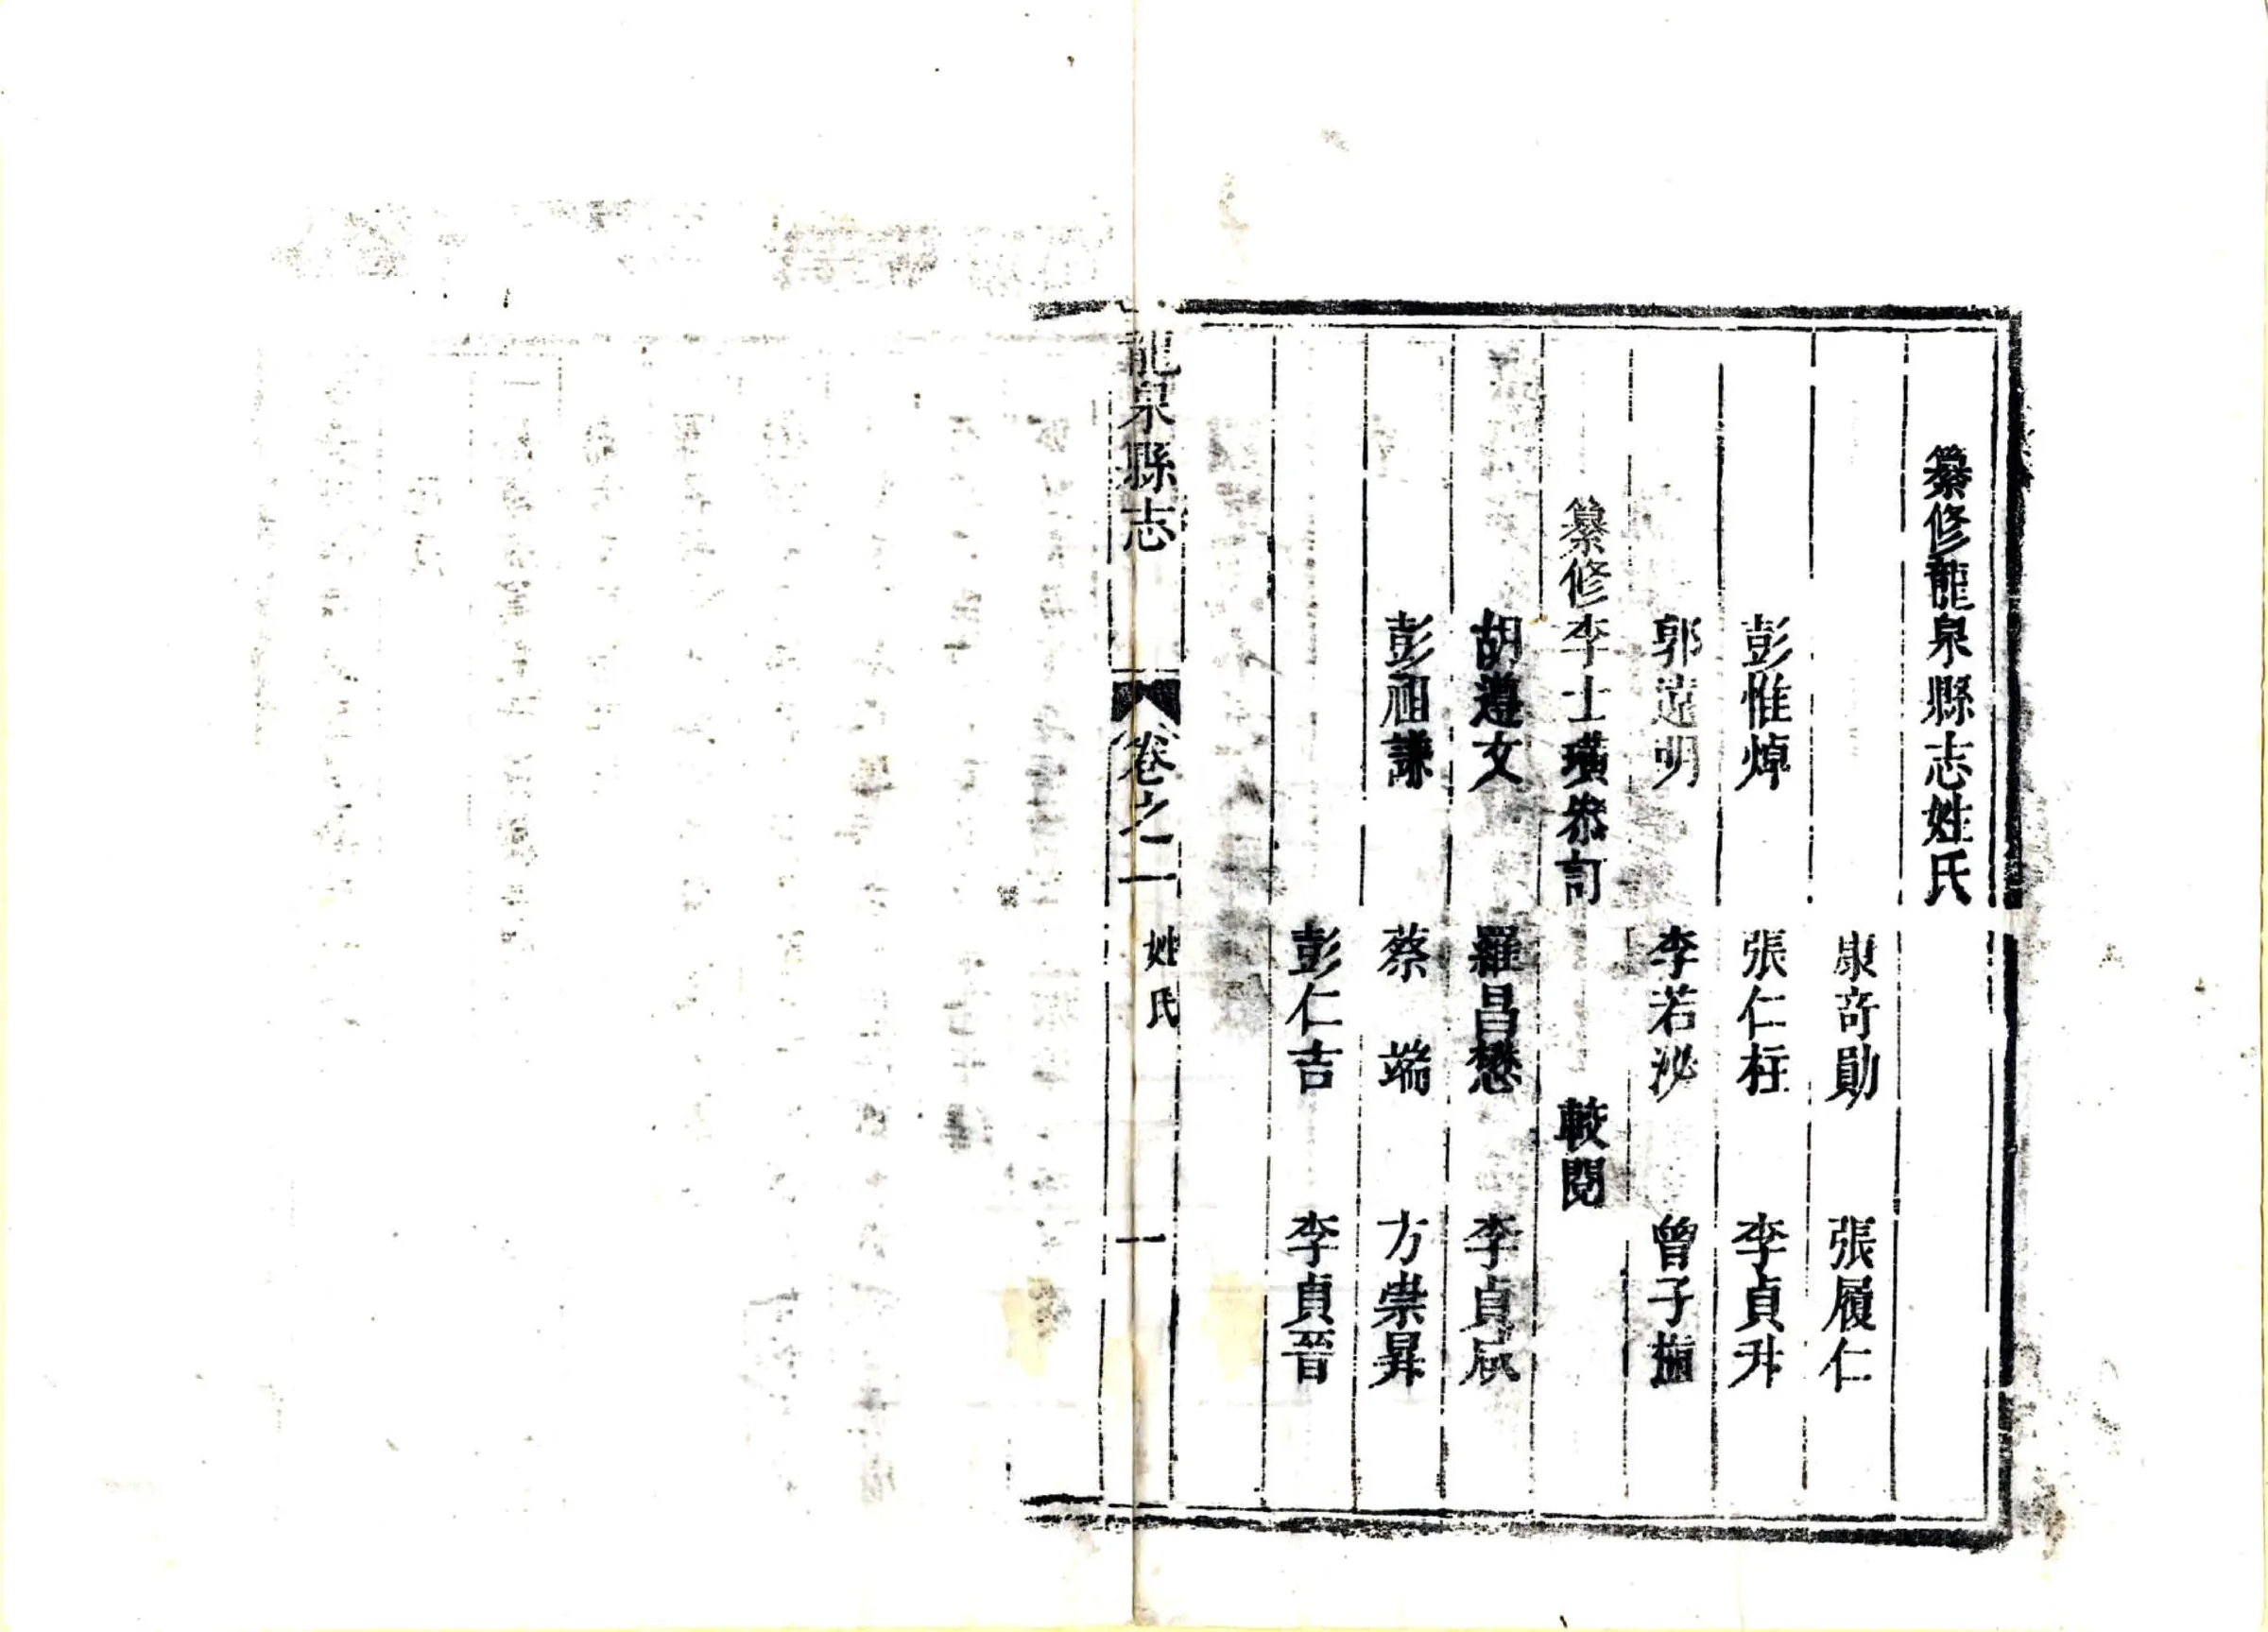 纂修龍泉縣志姓氏
康奇勛 張履仁
彭惟焯 張仁柱 李貞升
郭造明 李若泌 曾子
纂修李士璜叅訂 較閱
胡遵文 羅昌懋 李貞
彭祖謙 蔡端 方崇昇
彭仁吉 李貞晉
龍泉縣志 卷之一 姓氏 一